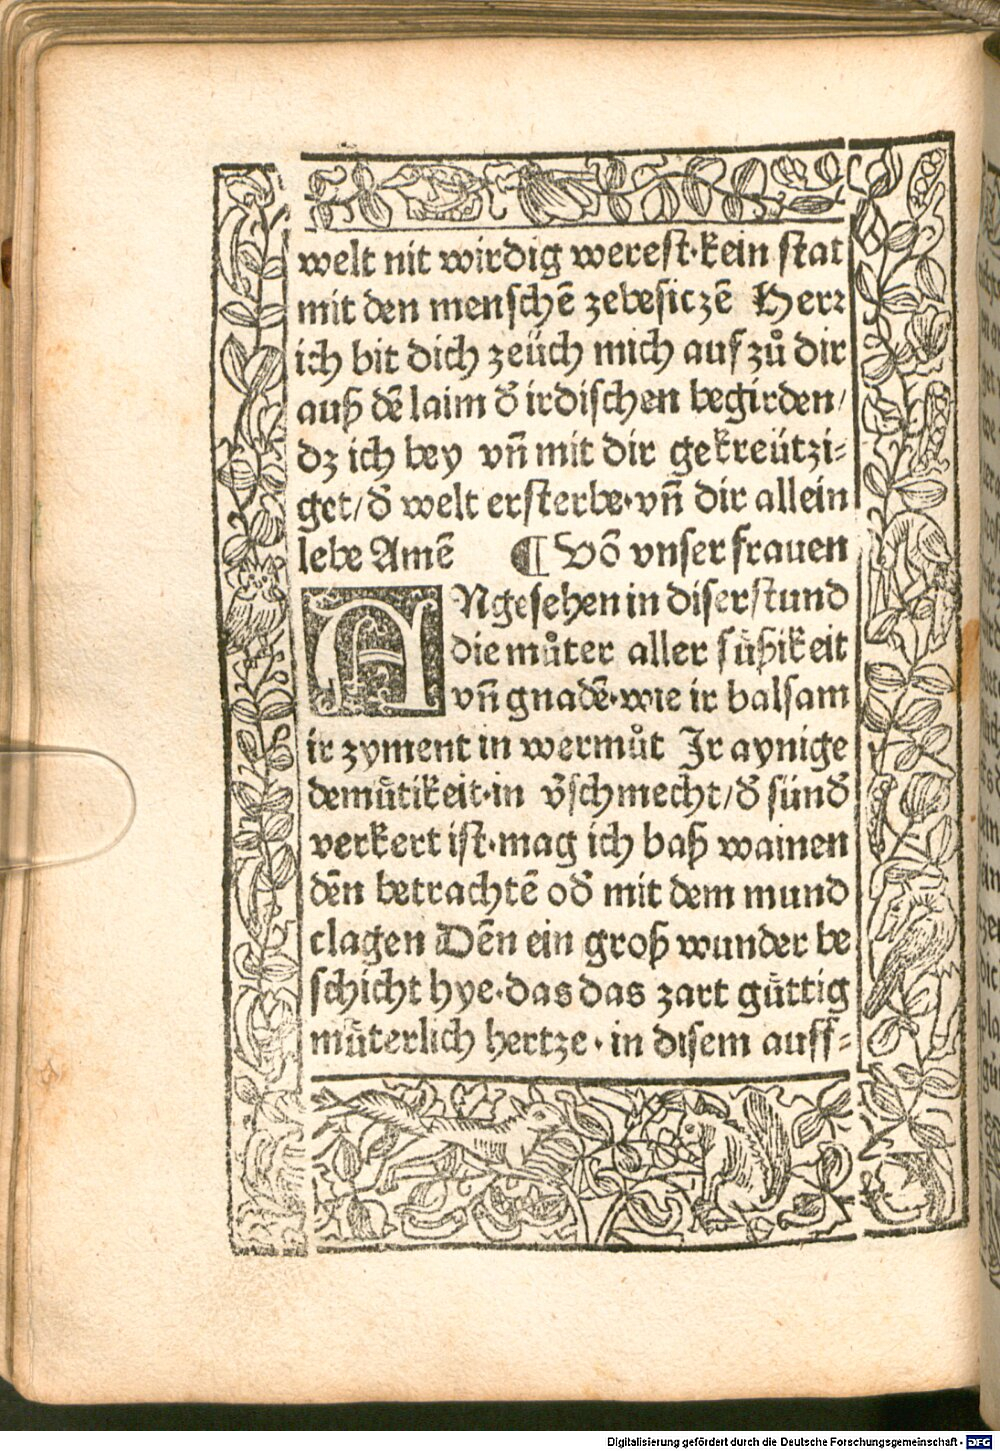 welt nit wirdig werest·kein stat
mit den menschē zebesiczē Herꝛ
ich bit dich zeüch mich auf zů dir
auß dē laim d̄ irdischen begirden/
dz ich bey vn̄ mit dir gekreützi⸗
get/d̄ welt ersterbe·vn̄ dir allein
lebe Amē ¶ Vō vnser frauen
ANgesehen in diser stund
die můter aller süßikeit
vn̄ gnadē·wie ir balsam
ir zyment in wermůt Ir aynige
demütikeit·in v̄schmecht/d̄ sünd̄
verkert ist·mag ich baß wainen
dēn betrachtē od̄ mit dem mund
clagen Dēn ein groß wunder be
schicht hye·das das zart güttig
müterlich hertze·in disem auff⸗
Digitalisierung gefördert durch die Deutsche Forschungsgemeinschaft - DFG